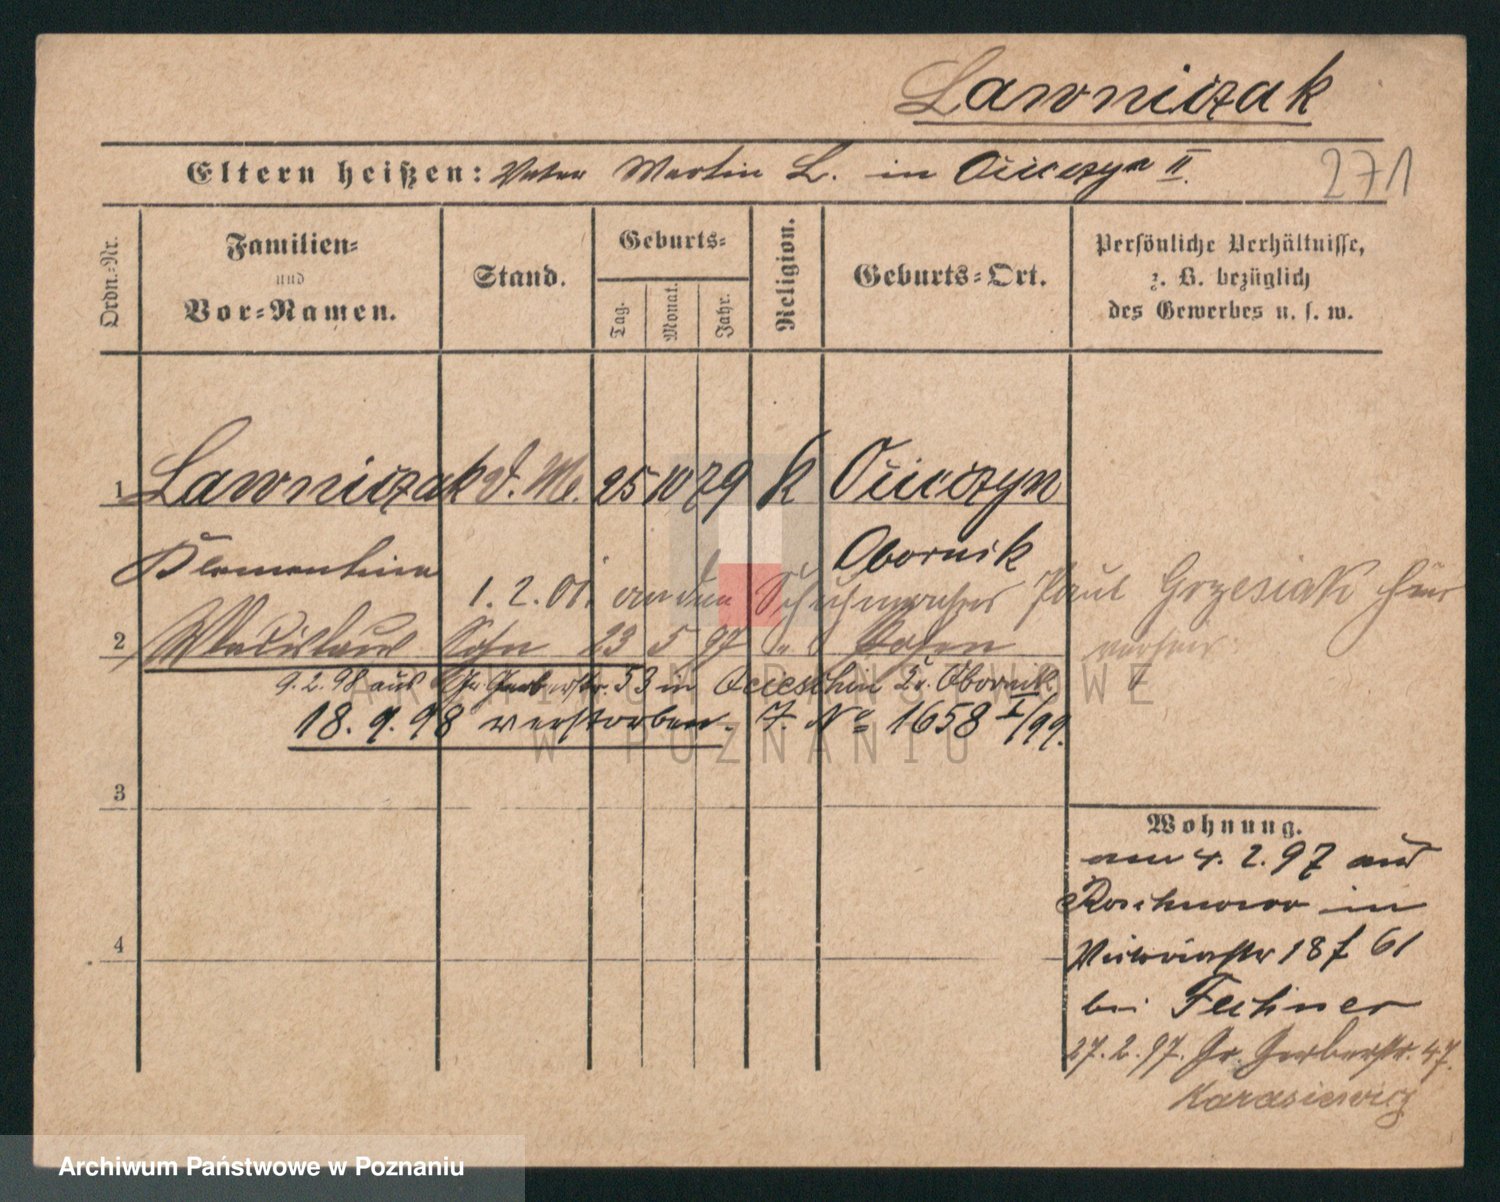 Lawniczak
Eltern heißen: Vater Martin L. in Ocieczyn II.
271
Ordn.-Nr.
Familien-
und
Vor-Namen.
Stand.
Geburts-
Tag.
Monat.
Jahr.
Religion.
Geburts-Ort.
Persönliche Verhältnisse,
z. B. bezüglich
des Gewerbes u. s. w.
1 Lawniczak d. M. 25 10 79 K
Klementine
Obornik
1. 2. 01. an den Schuhmacher Paul Grzesiak hier
2 Wladislaus Sohn 23 5 97 " Posen
9. 2. 98 aus Gr. Gerberstr. 53 in Ocieschin Kr. Obornik
18. 9. 98 verstorben. J. No 1658 I/99.
3
4
Wohnung.
am 4. 2. 97 aus
in
Victoriastr 18 f 61
bei Fechner
27. 2. 97. Gr. Gerberstr. 47.
Karasiewicz
ARCHIWUM PAŃSTWOWE
W POZNANIU
Archiwum Państwowe w Poznaniu